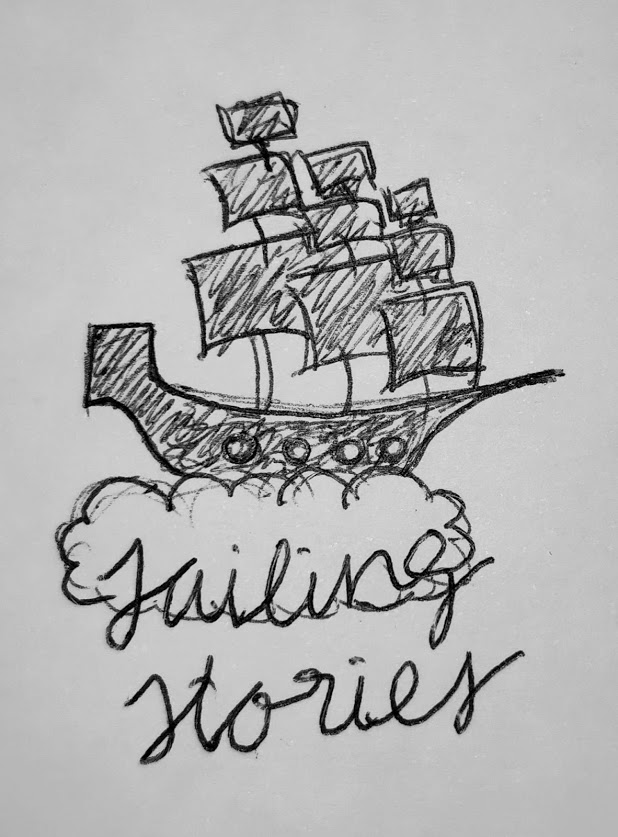 sailing
stories